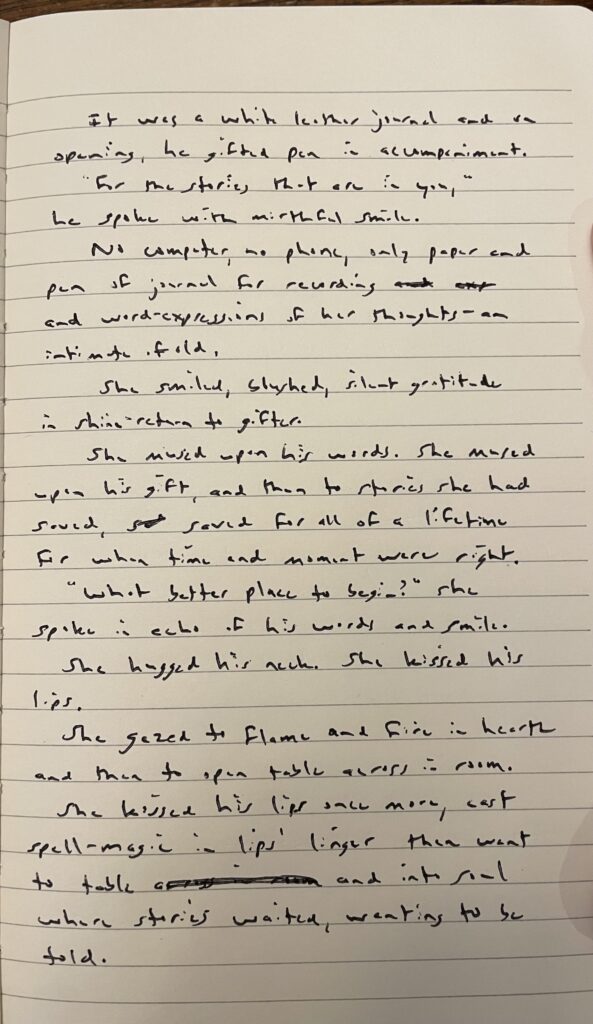 It was a white leather journal and on
opening, he gifted pen in accompaniment.
"For the stories that are in you,"
he spoke with mirthful smile.
No computer, no phone, only paper and
pen of journal for recording
and word-expressions of her thoughts-an
intimate of old.
She smiled, blushed, silent gratitude
in shine-return to gifter.
She mused upon his words. She mused
upon his gift, and then to stories she had
saved, saved for all of a lifetime
for when time and moment were right.
"What better place to begin?" she
spoke in echo of his words and smile.
She hugged his neck. She kissed his
lips.
She gazed to flame and fire in hearth
and then to open table across in room.
She kissed his lips once more, cast
spell-magic in lips' linger then went
to table and into soul
where stories waited, wanting to be
told.